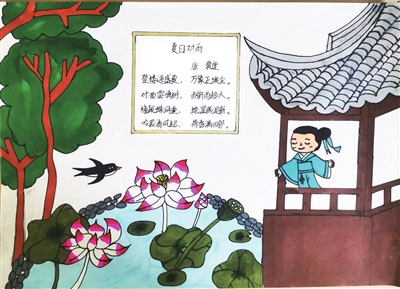 夏日对雨
唐 裴度
登楼逃盛夏,万象正埃尘。
对面雷嗔树,当街雨趁人。
檐疏蛛网重,地湿燕泥新。
吟罢清风起,荷香满四邻。